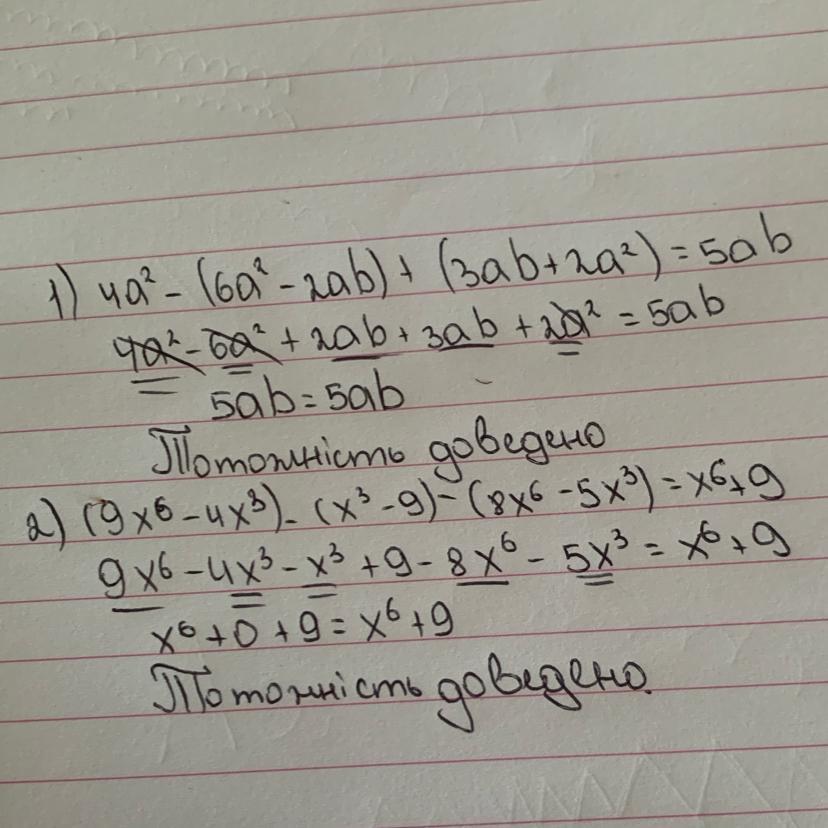 1) 4a² - (6a² - 2ab) + (3ab + 2a²) = 5ab
4a² - 6a² + 2ab + 3ab + 2a² = 5ab
5ab = 5ab
Тотожність доведено
2) (9x⁶ - 4x³) - (x³ - 9) - (8x⁶ - 5x³) = x⁶ + 9
9x⁶ - 4x³ - x³ + 9 - 8x⁶ - 5x³ = x⁶ + 9
x⁶ + 0 + 9 = x⁶ + 9
Тотожність доведено.